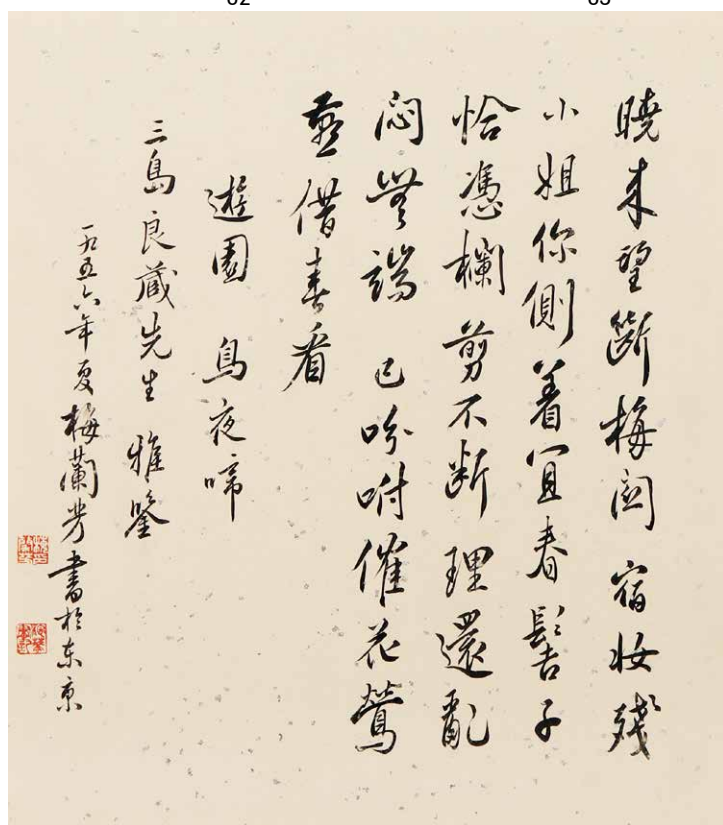 曉来望斷梅関宿妆殘
小姐你側着宜春髻子
恰憑欄剪不断理還亂
闷無端 已吩咐催花鶯
燕借春看
遊園 烏夜啼
三島良藏先生 雅鑒
一九五六年夏梅蘭芳書於东京